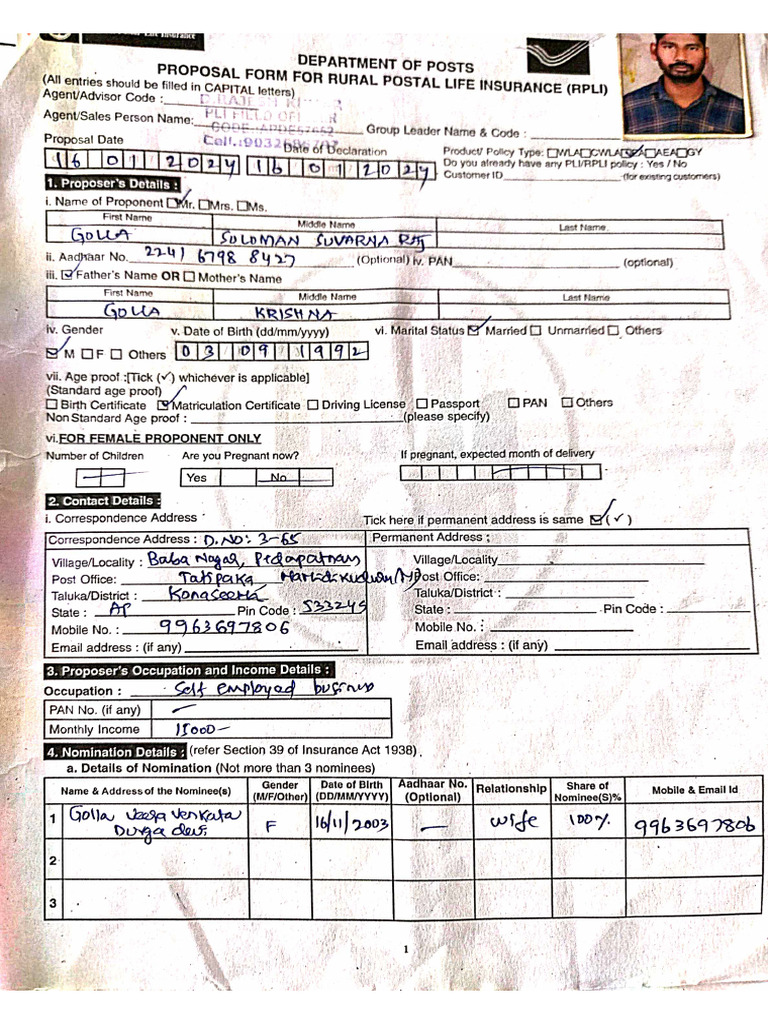 Life Insurance
DEPARTMENT OF POSTS
PROPOSAL FORM FOR RURAL POSTAL LIFE INSURANCE (RPLI)
(All entries should be filled in CAPITAL letters)
Agent/Advisor Code :
Agent/Sales Person Name: PLI FIELD OFFICER Group Leader Name & Code :
Proposal Date Date of Declaration Product/ Policy Type: ☐WLA☐CWLA☑EA☐AEA☐GY
16 01 2024 16 01 2024 Do you already have any PLI/RPLI policy : Yes / No
Customer ID (for existing customers)
1. Proposer's Details :
i. Name of Proponent ☑Mr. ☐Mrs. ☐Ms.
First Name Middle Name Last Name
GOLLA SOLOMAN SUVARNA RAJ
ii. Aadhaar No. 2241 6798 8427 (Optional) iv. PAN (optional)
iii. ☑ Father's Name OR ☐ Mother's Name
First Name Middle Name Last Name
GOLLA KRISHNA
iv. Gender v. Date of Birth (dd/mm/yyyy) vi. Marital Status ☑ Married ☐ Unmarried ☐ Others
☑ M ☐ F ☐ Others 03 09 1992
vii. Age proof :[Tick (✓) whichever is applicable]
(Standard age proof)
☐ Birth Certificate ☑ Matriculation Certificate ☐ Driving License ☐ Passport ☐ PAN ☐ Others
Non Standard Age proof : (please specify)
vi.FOR FEMALE PROPONENT ONLY
Number of Children Are you Pregnant now? If pregnant, expected month of delivery
Yes No
2. Contact Details :
i. Correspondence Address Tick here if permanent address is same ☑ (✓)
Correspondence Address : D.NO: 3-65 Permanent Address :
Village/Locality : Baba Nagar, Pedapatnam Village/Locality
Post Office: Tatipaka Post Office:
Taluka/District : Konaseema Taluka/District :
State : AP Pin Code : 533249 State : Pin Code :
Mobile No. : 9963697806 Mobile No. :
Email address : (if any) Email address : (if any)
3. Proposer's Occupation and Income Details :
Occupation : Self employed business
PAN No. (if any) —
Monthly Income 15000-
4. Nomination Details : (refer Section 39 of Insurance Act 1938)
a. Details of Nomination (Not more than 3 nominees)
Name & Address of the Nominee(s) Gender (M/F/Other) Date of Birth (DD/MM/YYYY) Aadhaar No. (Optional) Relationship Share of Nominee(S)% Mobile & Email Id
1 Golla Veera Venkata Durga devi F 16/11/2003 — wife 100% 9963697806
2
3
1